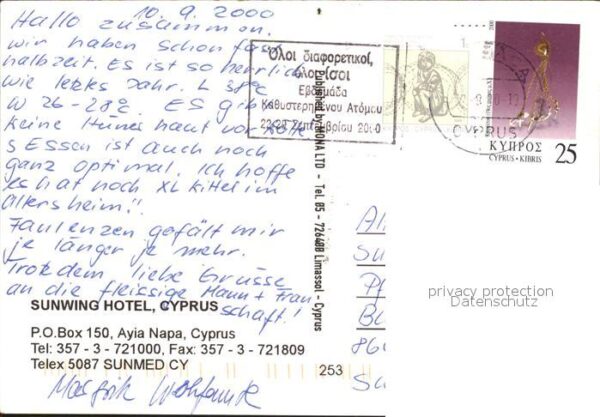 10.9.2000
Hallo zusammen.
wir haben schon fast
halbzeit. Es ist so herrlich
wie letzes Jahr. L
W 26-28° ES gibt
keine
s Essen ist auch noch
ganz optimal. Ich hoffe
es hat noch XL kittel im
Altersheim!!
Faulenzen gefält mir
je länger je mehr.
Trotzdem liebe Grüsse
an die fleissige Mann + Frau
schaft!
SUNWING HOTEL, CYPRUS
P.O.Box 150, Ayia Napa, Cyprus
Tel: 357 - 3 - 721000, Fax: 357 - 3 - 721809
Telex 5087 SUNMED CY
Published by NONA LTD - Tel. 05 - 726488 Limassol - Cyprus
253
Όλοι διαφορετικοί,
όλοι ίσοι
Εβδομάδα
Καθυστερημένου Ατόμου
22-27 Σεπτεμβρίου 2000
CYPRUS
ΚΥΠΡΟΣ
CYPRUS · KIBRIS
25
Su
privacy protection
Datenschutz